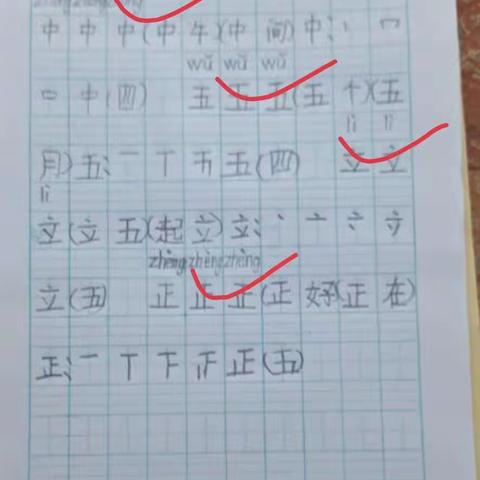 中 中 中(中 午)(中 间)中:丶 冖
wǔ wǔ wǔ
口 中(四) 五 五 五(五 十)(五
lì lì
月)五:一 丅 五(四) 立 立
lì
立(立 五)(起 立)立:丶 亠
zhèng zhèng zhèng
立(五) 正 正 正(正 好)(正 在)
正:一 丅 下 正(五)